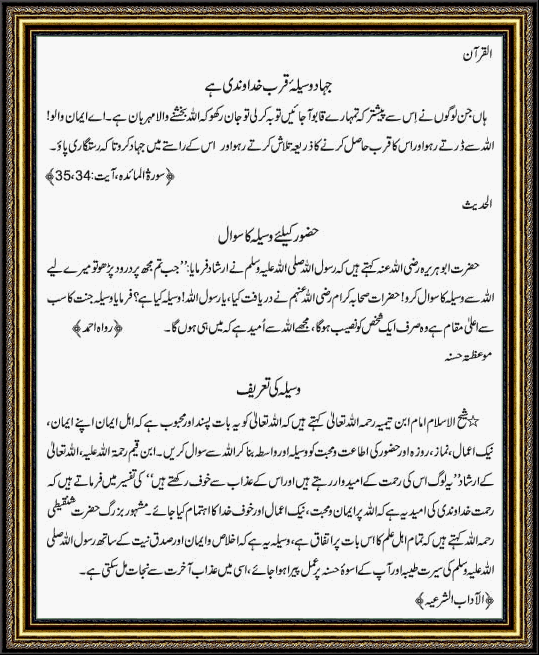 القرآن
جہاد وسیلۂ قرب خداوندی ہے
ہاں جن لوگوں نے اس سے پیشتر کہ تمہارے قابو آ جائیں توبہ کر لی تو جان رکھو کہ اللہ بخشنے والا مہربان ہے۔ اے ایمان والو!
اللہ سے ڈرتے رہو اور اس کا قرب حاصل کرنے کا ذریعہ تلاش کرتے رہو اور اس کے راستے میں جہاد کرو تا کہ رستگاری پاؤ۔
﴿سورۃ المائدہ، آیت: 35،34﴾
الحدیث
حضور کیلئے وسیلہ کا سوال
حضرت ابو ہریرہ رضی اللہ عنہ کہتے ہیں کہ رسول اللہ صلی اللہ علیہ وسلم نے ارشاد فرمایا: ’’جب تم مجھ پر درود پڑھو تو میرے لیے
اللہ سے وسیلہ کا سوال کرو! حضرات صحابہ کرام رضی اللہ عنہم نے دریافت کیا، یا رسول اللہ! وسیلہ کیا ہے؟ فرمایا وسیلہ جنت کا سب
سے اعلیٰ مقام ہے وہ صرف ایک شخص کو نصیب ہوگا، مجھے اللہ سے اُمید ہے کہ میں ہی ہوں گا۔ ﴿رواہ احمد﴾
موعظتہ حسنہ
وسیلہ کی تعریف
☆ شیخ الاسلام امام ابن تیمیہ رحمہ اللہ تعالیٰ کہتے ہیں کہ اللہ تعالیٰ کو یہ بات پسند اور محبوب ہے کہ اہل ایمان اپنے ایمان،
نیک اعمال، نماز، روزہ اور حضور کی اطاعت و محبت کو وسیلہ اور واسطہ بنا کر اللہ سے سوال کریں۔ ابن قیم رحمۃ اللہ علیہ، اللہ تعالیٰ
کے ارشاد ’’یہ لوگ اس کی رحمت کے امیدوار رہتے ہیں اور اس کے عذاب سے خوف رکھتے ہیں‘‘ کی تفسیر میں فرماتے ہیں کہ
رحمت خداوندی کی امید یہ ہے کہ اللہ پر ایمان و محبت، نیک اعمال اور خوف خدا کا اہتمام کیا جائے۔ مشہور بزرگ حضرت شنقیطی
رحمہ اللہ کہتے ہیں کہ تمام اہل علم کا اس بات پر اتفاق ہے، وسیلہ یہ ہے کہ اخلاص و ایمان اور صدق نیت کے ساتھ رسول اللہ صلی
اللہ علیہ وسلم کی سیرت طیبہ اور آپ کے اسوۂ حسنہ پر عمل پیرا ہوا جائے، اسی میں عذاب آخرت سے نجات مل سکتی ہے۔
﴿الآداب الشرعیہ﴾